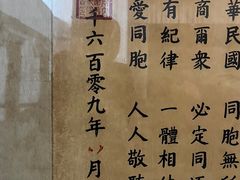 華民國 同胞無
商爾眾 必定同
有紀律 一體相
愛同胞 人人敬
千六百零九年 八月